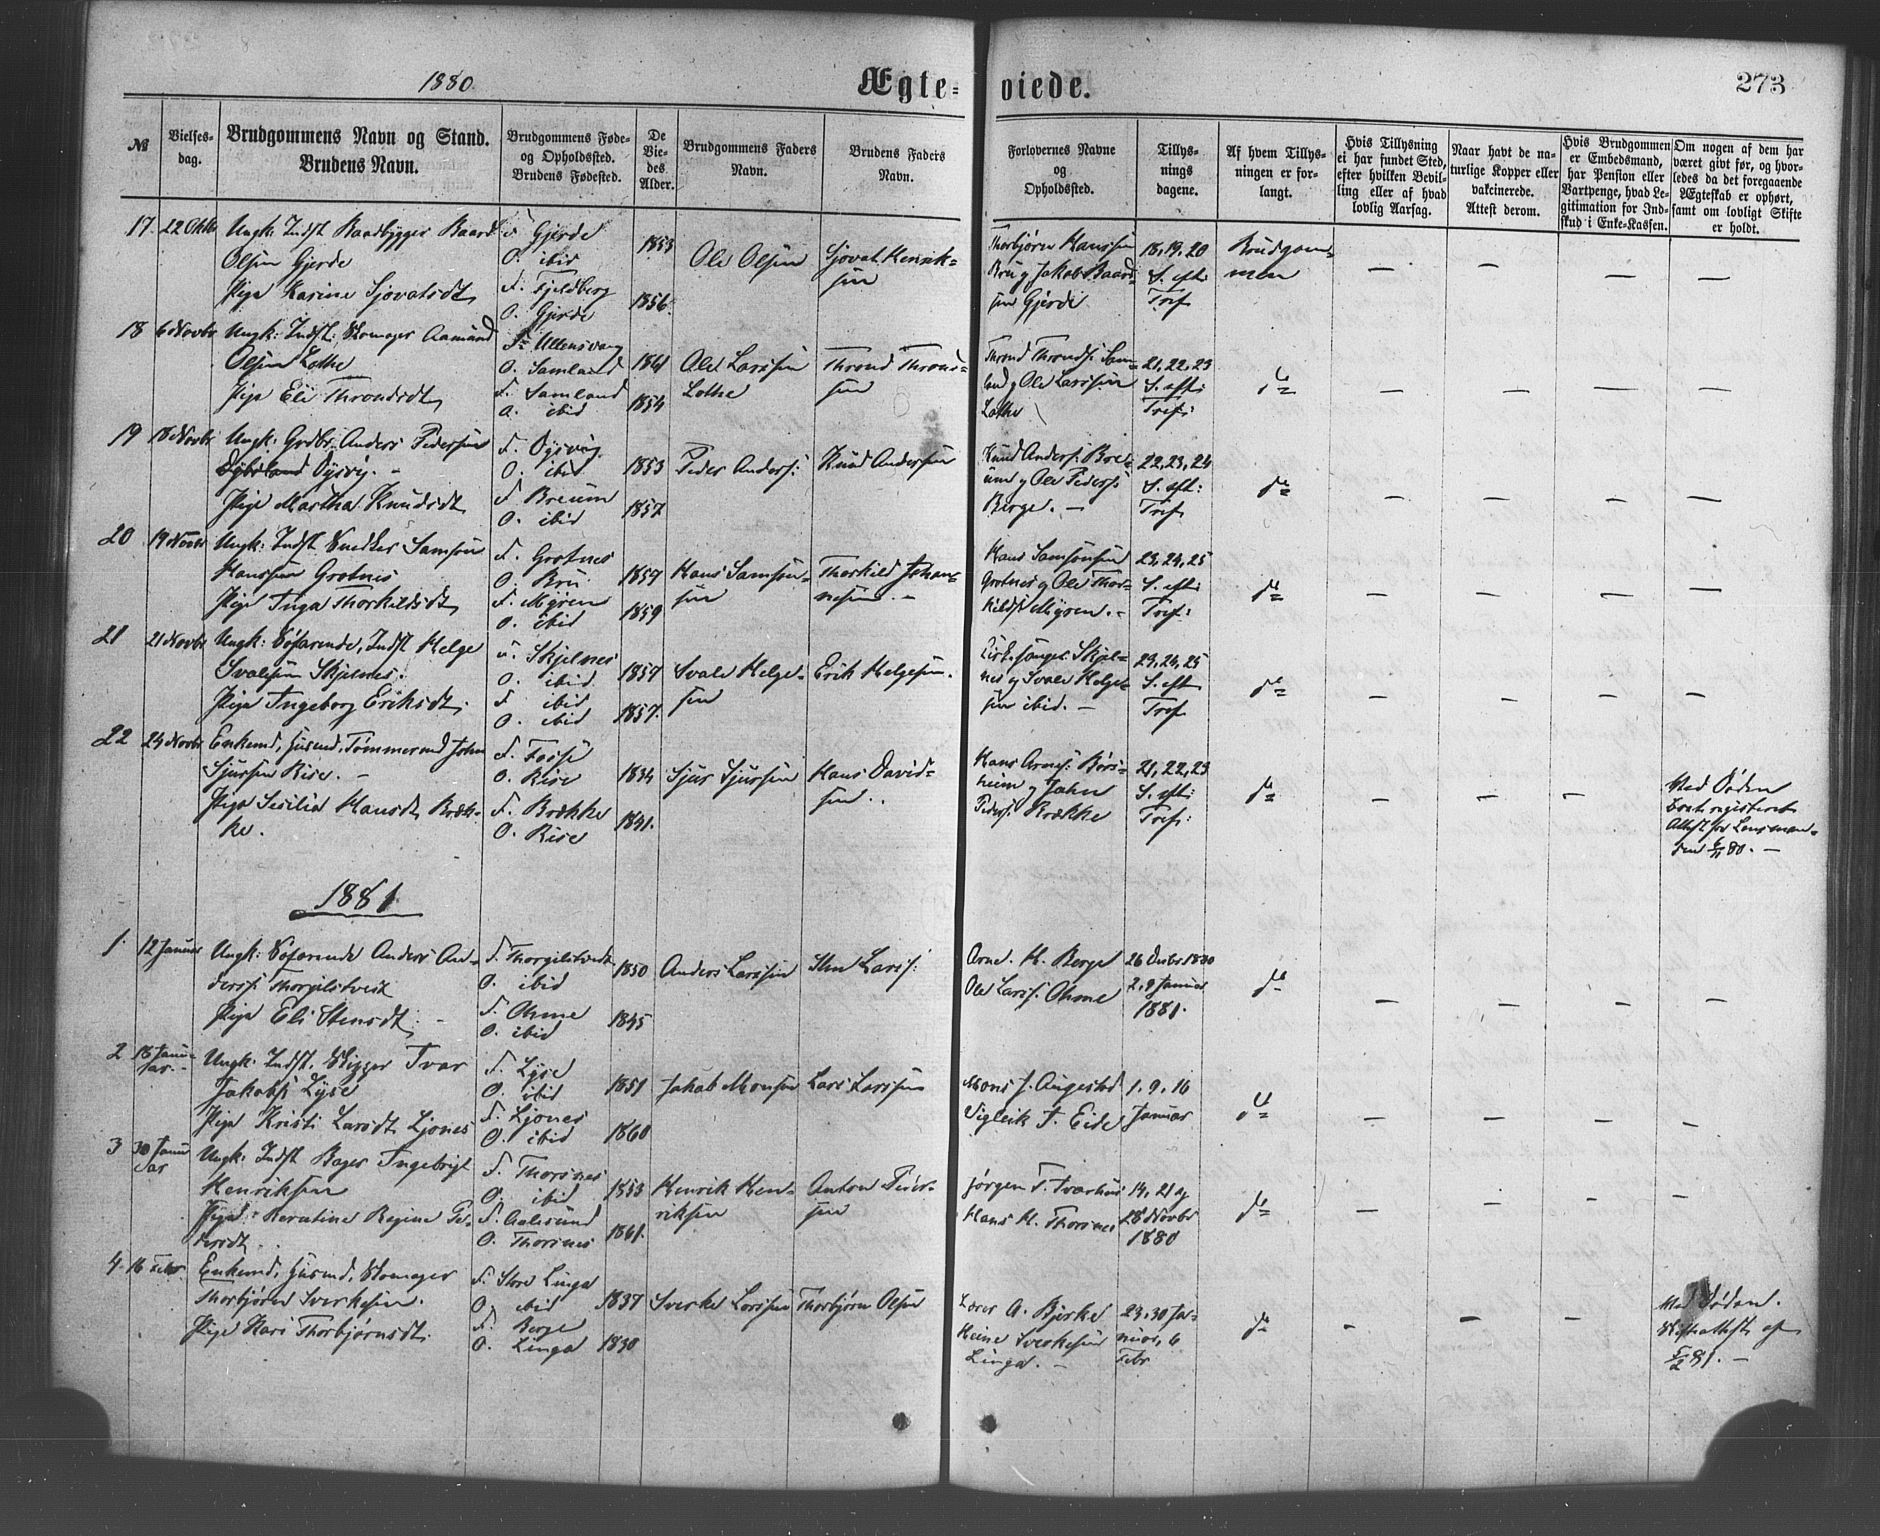 1880.
Ægte-
viede.
273
№
Vielses-
dag.
Brudgommens Navn og Stand.
Brudens Navn.
Brudgommens Føde-
og Opholdssted.
Brudens Fødested.
De
Vie-
des
Alder.
Brudgommens Faders
Navn.
Brudens Faders
Navn.
Forlovernes Navne
og
Opholdssted.
Tillys-
nings
dagene.
Af hvem Tillys-
ningen er for-
langt.
Hvis Tillysning
ei har fundet Sted,
efter hvilken Bevil-
ling eller af hvad
lovlig Aarsag.
Naar havt de na-
turlige Kopper eller
vakcinerede.
Attest derom.
Hvis Brudgommen
er Embedsmand,
har Pension eller
Vartpenge, hvad Le-
gitimation for Ind-
skud i Enke-Kassen.
Om nogen af dem har
været givt før, og hvor-
ledes da det foregaaende
Ægteskab er ophørt,
samt om lovligt Skifte
er holdt.
17
22 Oktbr
Ungk: Indst Baadbygger Baard
Olsen Gjerde
Pige Karine Sjovatsdt,
F. Gjerde
O. ibid
F. Fjeldberg
O. Gjerde
1853
1856.
Ole Olsen
Sjovat Henrik-
sen
Thorbjørn Hanssen
Bru og Jakob Baard-
sen Gjerde
18, 19, 20
S. eft:
Tref.
Brudgom-
men
18
6 Novbr
Ungk: Indst: Skomager Aamund
Olsen Lothe
Pige Eli Throndsdt,
F. Ullensvang
O. Samland
F. Samland
O. ibid
1861
1854
Ole Larssen
Lothe
Thrond Throns-
sen
Thrond Thronds. Sam-
land og Ole Larssen
Lothe
21, 22, 23
S. eft:
Tref:
do
19
18 Novbr
Ungk: Grdbr. Anders Pedersen
Dysvig. -
Pige Martha Knudsdt,
F. Dysvig
O. ibid
F. Breum
O. ibid
1853
1857
Peder Anders:
Knud Andersen
Knud Anders: Bre-
um og Ole Peders:
Berge. -
22, 23, 24
S. eft:
Tref.
do
20
19 Novbr
Ungk: Indst Snedker Samson
Hanssen Grotnes
Pige Inga Thorkildsdt,
F. Grotnes
O. Bru
F. Myren
O. ibid
1857
1859
Hans Samson-
sen
Thorkild Johan-
nesen. -
Hans Samsonsen
Grotnes og Ole Thor-
kilds: Myren. -
23, 24, 25
S. eft:
Tref:
do
21
21 Novbr
Ungk: Søfarende, Indst Helge
Svalesen Skjelnes.
Pige Ingeborg Eriksdt,
F. Skjelnes
O. ibid
F. ibid
O. ibid
1857
1857.
Svale Helge-
sen
Erik Helgesen.
Skjel-
nes og Svale Helge-
sen ibid. -
23, 24, 25
S. eft
Tref.
do
22
24 Novbr
Enkemd, Husmd, Tømmermd John
Sjursen Rise. -
Pige Sesilia Hansdt, Bræk-
ke.
F. Fosse
O. Rise
F. Brække
O. Rise
1834
1841.
Sjur Sjursen
Hans David-
sen.
Hans Arnes: Børs-
heim og John
Peders: Brække
21, 22, 23
S. eft:
Tref:
do
Ved Døden
Boet registeret
Attest fra Lensman-
den 6/11 80. -
1881
1.
12 Januar
Ungk: Søfarende Anders An-
ders: Thorgilstveit
Pige Eli Stensdt,
F. Thorgilstveit
O. ibid
F. Ohme
O. ibid
1850
1845
Anders Larssen
Sten Lars:
Arne H. Berge
Ole Lars: Ohme
26 Decbr 1880
2, 9 Januar
1881.
do
2
18 Janu-
ar.
Ungk: Indst. Skipper Ivar
Jakobs: Lyse
Pige Kristi Larsdt, Ljones
F. Lyse
O. ibid
F. Ljones
O. ibid
1851
1860
Jakob Monsen
Lars Larssen
Mons J. Augestad
Vigleik T. Eide
1, 9, 16
Januar
do
3
30 Janu-
ar
Ungk: Indst Bager Ingebrigt
Henriksen
Pige Regine Pe-
dersdt.
F. Thorsnes
O. ibid
F. Aalesund
O. Thorsnes
1853
1861.
Henrik Hen-
riksen
Anton Peder-
sen
Jørgen T. Tvarhus
Hans H. Thorsnes
14, 21 og
28 Novbr
1880
do
4
16 Febr.
Enkemd, Husmd, Skomager
Thorbjørn Sverkesen.
Pige Kari Thorbjørnsdt.
F. Store Linga
O. ibid
F. Berge
O. Linga
1837
1830
Sverke Larssen
Thorbjørn Olsen
Lærer A. Bjerke
Heine Sverkesen
Linga. -
23, 30 Ja-
nuar, 6
Febr
do
Ved Døden.
Skifteattest af
5/2 81. -